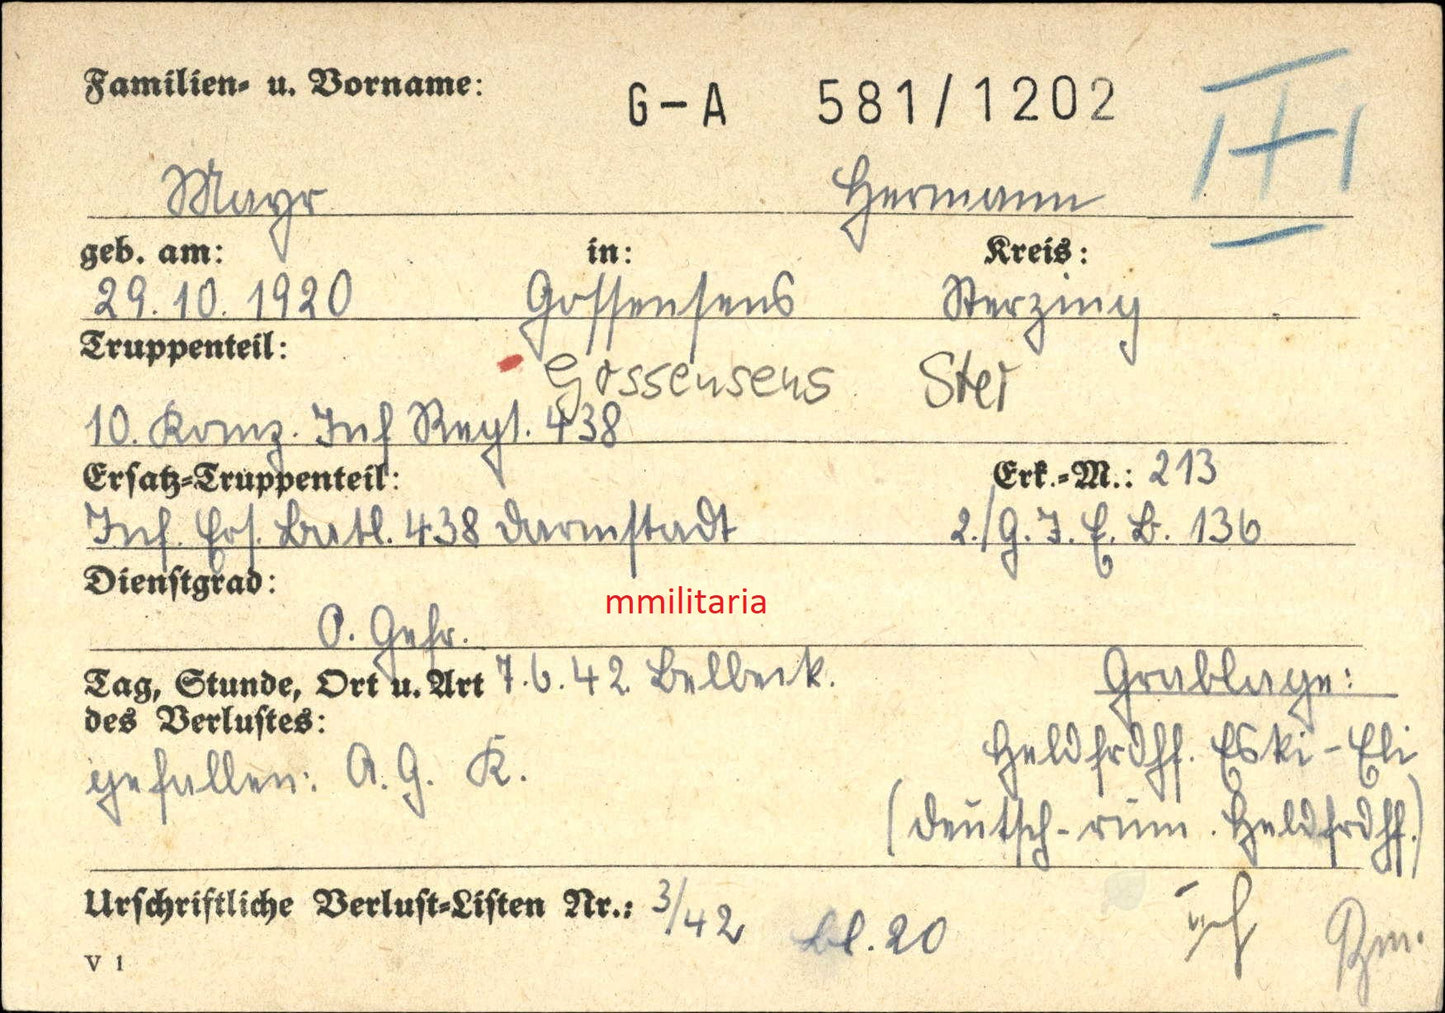 Familien- u. Vorname:
G-A 581/1202
Mayr Hermann
geb. am: in: Kreis:
29.10.1920 Gossensens Sterzing
Truppenteil:
Gossensens Ster
10. Komp. Inf Regt. 438
Ersatz-Truppenteil: Erk.-M.: 213
Inf. Ers. Batl. 438 Darmstadt 2./G.J.E.B. 136
Dienstgrad:
mmilitaria
O. Gefr.
Tag, Stunde, Ort u. Art 7.6.42 Belbeck. Grablage:
des Verlustes:
Heldfrdhf. Eski-Eli
gefallen: A.G. K.
(deutsch-rum. Heldfrdhf.)
Urschriftliche Verlust-Listen Nr.: 3/42 bl. 20
V 1